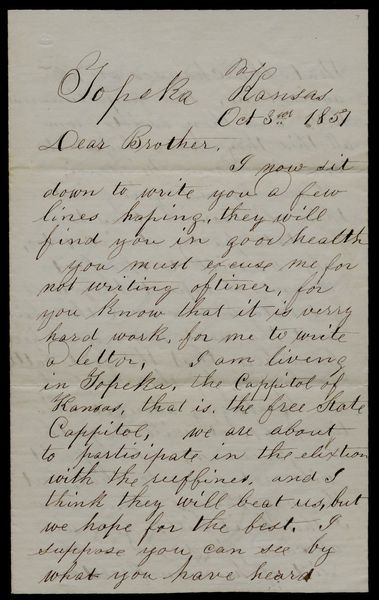 Topeka Kansas
Oct 3rd 1857
Dear Brother,
I now sit
down to write you a few
lines hoping, they will
find you in good health
you must excuse me for
not writing oftiner, for
you know that it is verry
hard work, for me to write
a letter, I am living
in Topeka, the Cappitol of
Kansas, that is, the free State
Cappitol, we are about
to partisipate in the elextion
with the ruffines, and I
think they will beat us, but
we hope for the best. I
suppose you can see by
what you have heard